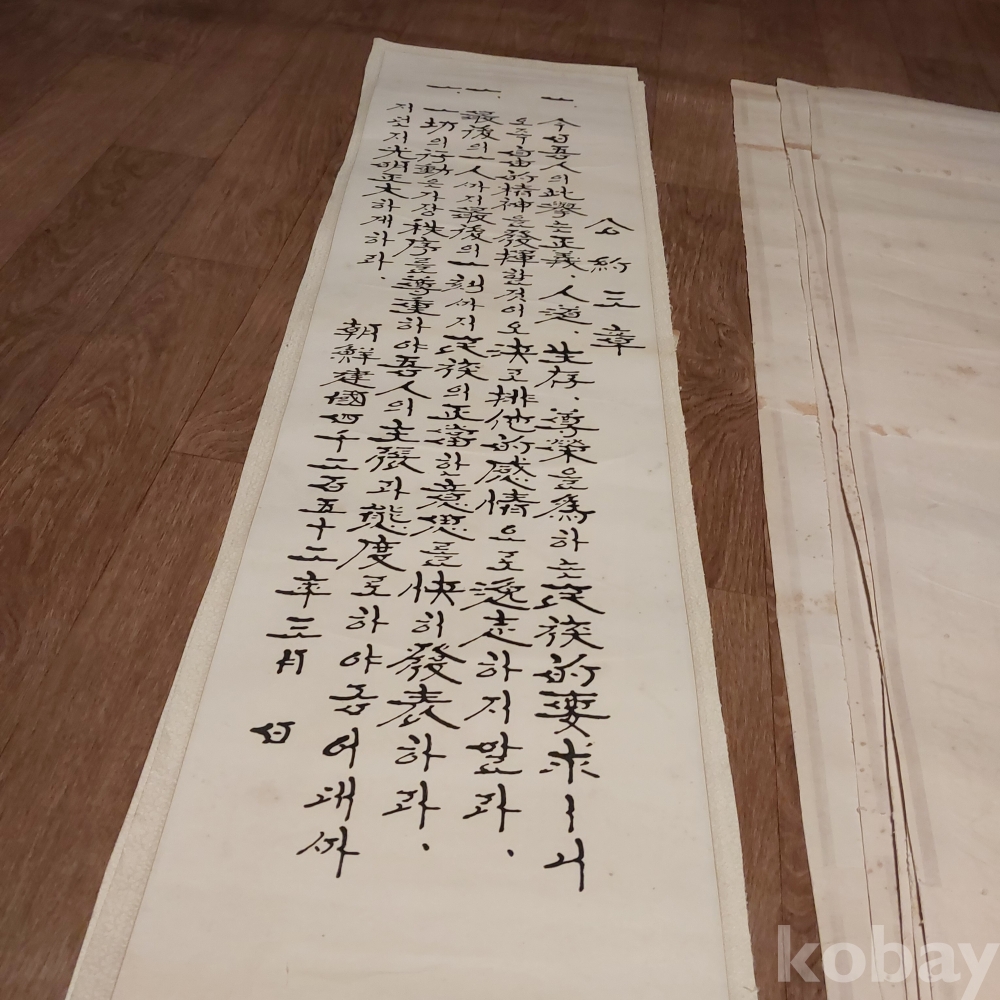 公約三章
一. 今日吾人의此擧는正義.人道.生存.尊榮을爲하는民族的要求ㅣ니
오즉自由的精神을發揮할것이오決코排他的感情으로逸走하지말라.
一. 最後의一人까지最後의一刻까지民族의正當한意思를快히發表하라.
一. 一切의行動은가장秩序를尊重하야吾人의主張과態度로하야금어대까
지던지光明正大하게하라.
朝鮮建國四千二百五十二年三月 日
kobay